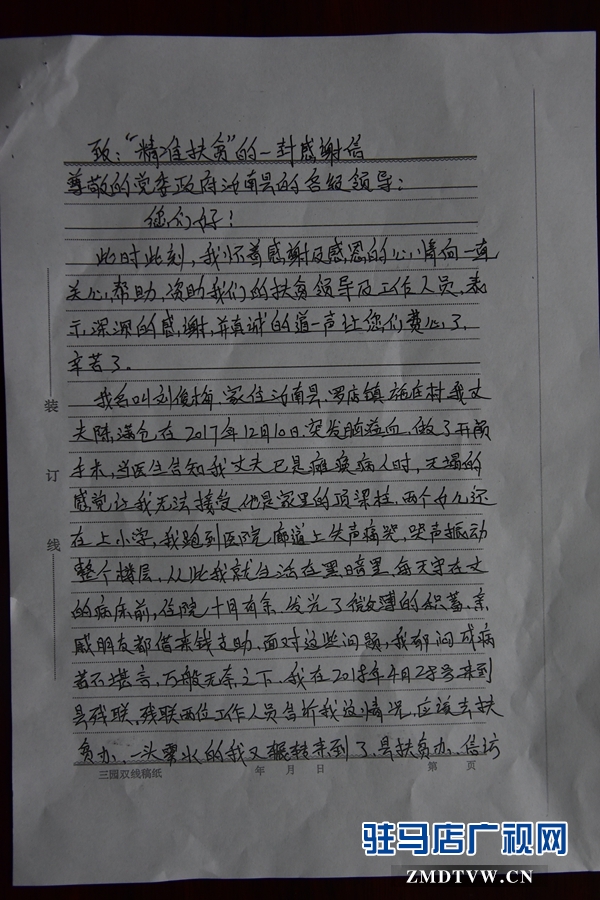 致："精准扶贫"的一封感谢信
尊敬的党委政府汝南县的各级领导：
您们好！
此时此刻，我怀着感谢及感恩的心，情向一直
关心，帮助，资助我们的扶贫领导及工作人员，表
示深深的感谢，并真诚的道一声让您们费心了，
辛苦了。
我名叫刘俊梅，家住汝南县，罗店镇 庄村我丈
夫陈满仓在2017年12月10日，突发脑溢血，做了开颅
手术，当医生告知我丈夫已是瘫痪病人时，天塌的
感觉让我无法接受，他是家里的顶梁柱，两个女儿还
在上小学，我跑到医院廊道上失声痛哭，哭声振动
整个楼层，从此我就生活在黑暗里，每天守在丈
的病床前，住院十月有余，发光了微薄的积蓄，亲
戚朋友都借来钱支助，面对这些问题，我郁闷成病
苦不堪言，万般无奈之下，我在2018年4月28号来到
县残联，残联两位工作人员告诉我这情况，应该去扶
贫办，一头雾水的我又辗转来到了，县扶贫办、信访
装
订
线
三园双线稿纸
年 月 日
第 页
驻马店广视网
ZMDTVW.CN